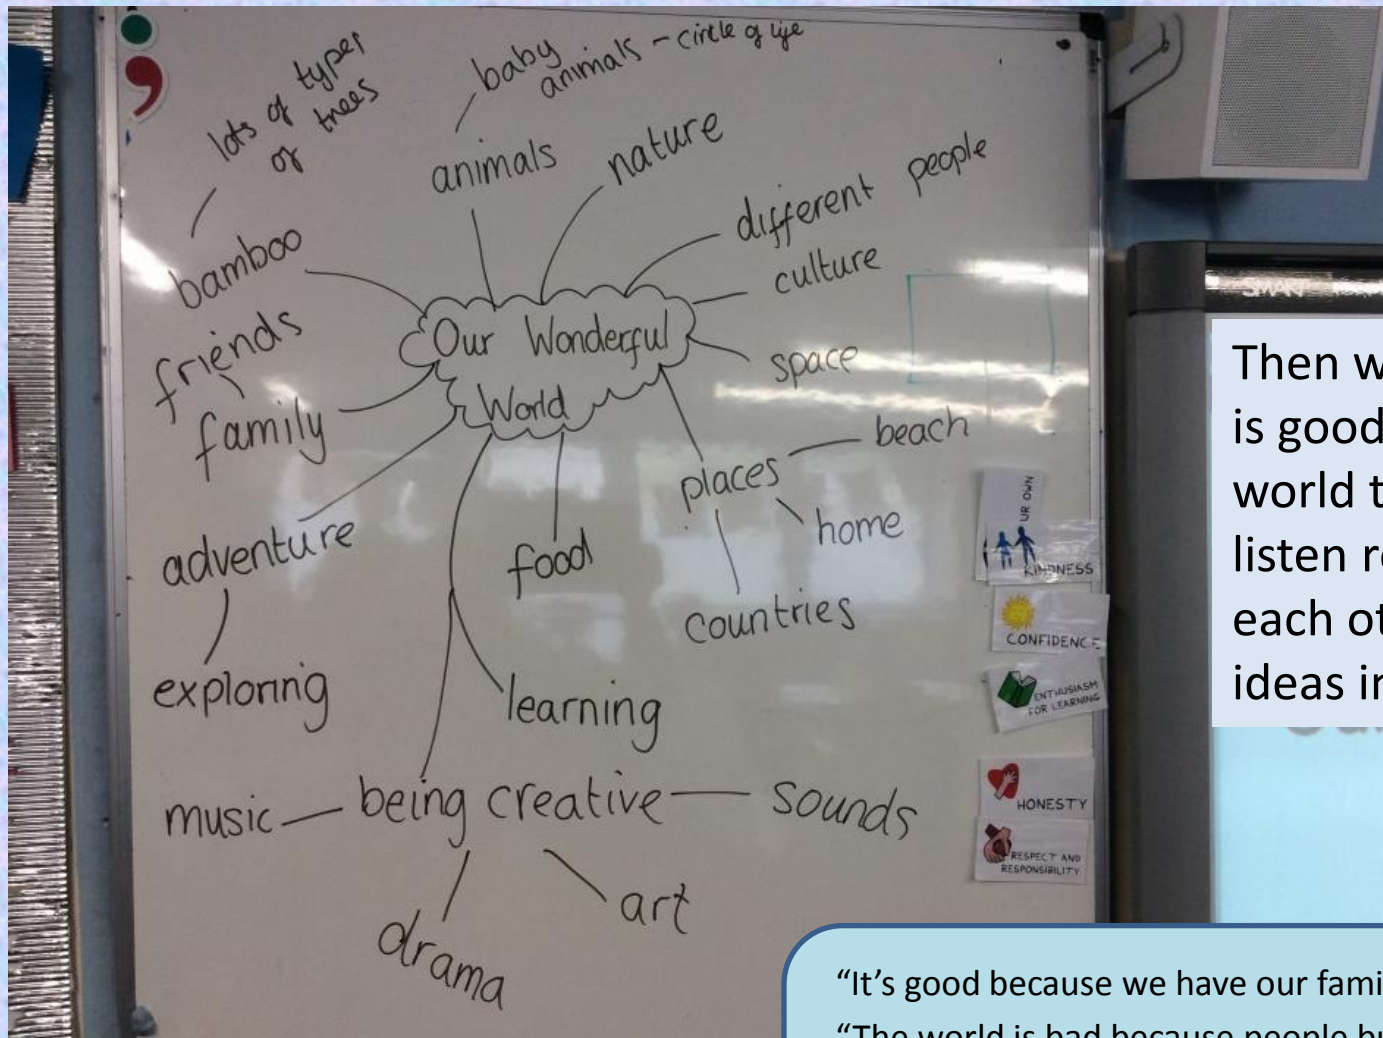 lots of types
of trees
baby
animals – circle of life
animals
nature
different people
culture
bamboo
friends
family
Our Wonderful
World
space
beach
places
home
adventure
food
countries
exploring
learning
music
being creative
sounds
drama
art
SMART
UR OWN
KINDNESS
CONFIDENCE
ENTHUSIASM
FOR LEARNING
HONESTY
RESPECT AND
RESPONSIBILITY
Then w
is good
world t
listen r
each ot
ideas in
“It’s good because we have our fami
“The world is bad because people bu